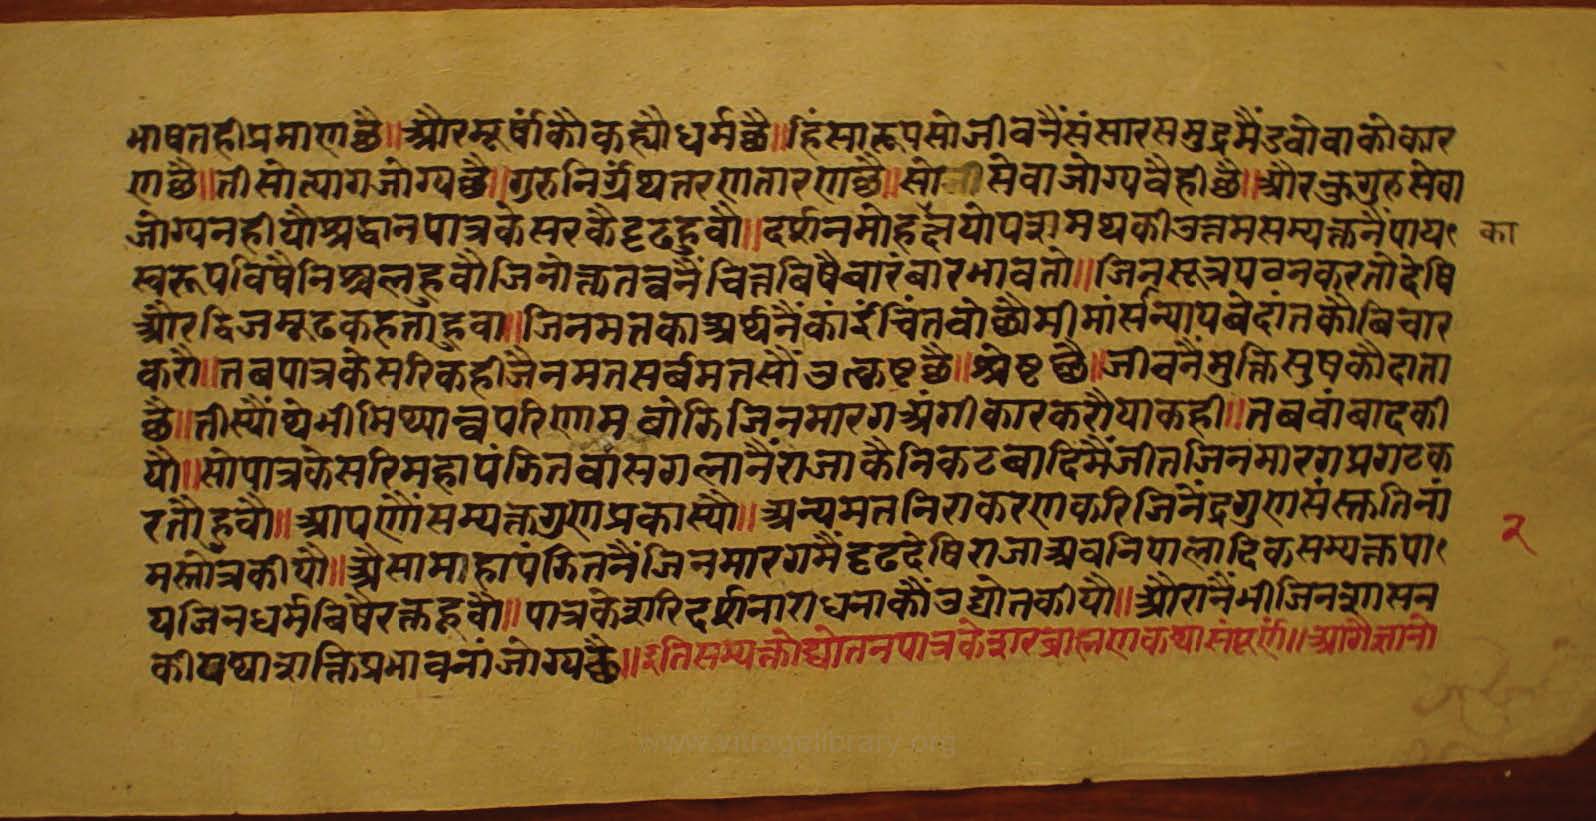 भाषतहीप्रमाणछै॥औरमूर्षांकौकह्यौधर्मछै॥हिंसारूपसोजीवनैंसंसारसमुद्रमैंडबोवाकोकार
णछै॥तीसोत्यागजोग्यछै॥गुरुनिर्ग्रंथतरणतारणछै॥सोतीसेवाजोग्यवैहीछै॥औरकुगुरुसेवा
जोग्यनहीयौश्रद्धानपात्रकेसरकैदृढहुवौ॥दर्शनमोहक्षयोपशमथकीउत्तमसम्यक्तनैंपाय
का
स्वरूपविषैनिश्चलहुवौजिनोक्ततत्वनैंचित्तबिषैबारंबारभावतो॥जिनसूत्रपवनकरतोदेषि
औरद्विजमूढकहतांहुवा॥जिनमतकाअर्थनैंकांईंचिंतवोछौमीमांसंन्यायबेदांतकौबिचार
करौ॥तबपात्रकेसरिकहीजैनमतसर्बमतसौंउत्कृष्टछै॥श्रेष्टछै॥जीवनैंमुक्तिसुषकौदाता
छै॥तीस्यौंथेभीमिथ्यात्वपरिणामछोडिजिनमारगअंगीकारकरौयाकही॥तबवांबादकी
यौ॥सोपात्रकेसरिमहापंडितवांसगलानैंराजाकैनिकटबादिमैंजीतजिनमारगप्रगटक
रतौहुवौ॥आपणौंसम्यक्तगुणप्रकास्यौ॥अन्यमतनिराकरणकरिजिनेंद्रगुणसंस्तुतिनां
२
मस्तोत्रकीयौ॥अैसामाहापंडितनैंजिनमारगमैंदृढदेषिराजाअवनिपालादिकसम्यक्तपा
यजिनधर्मबिषैरक्तहुवौ॥पात्रकेशरिदर्शनाराधनाकौंउद्योतकीयौ॥औरानैंभीजिनशासन
कीयथाशक्तिप्रभावनांजोग्यछै॥इतिसम्यक्तोद्योतनपात्रकेशरब्राह्मणकथासंपूर्णं॥आगैज्ञानो
www.vitragelibrary.org